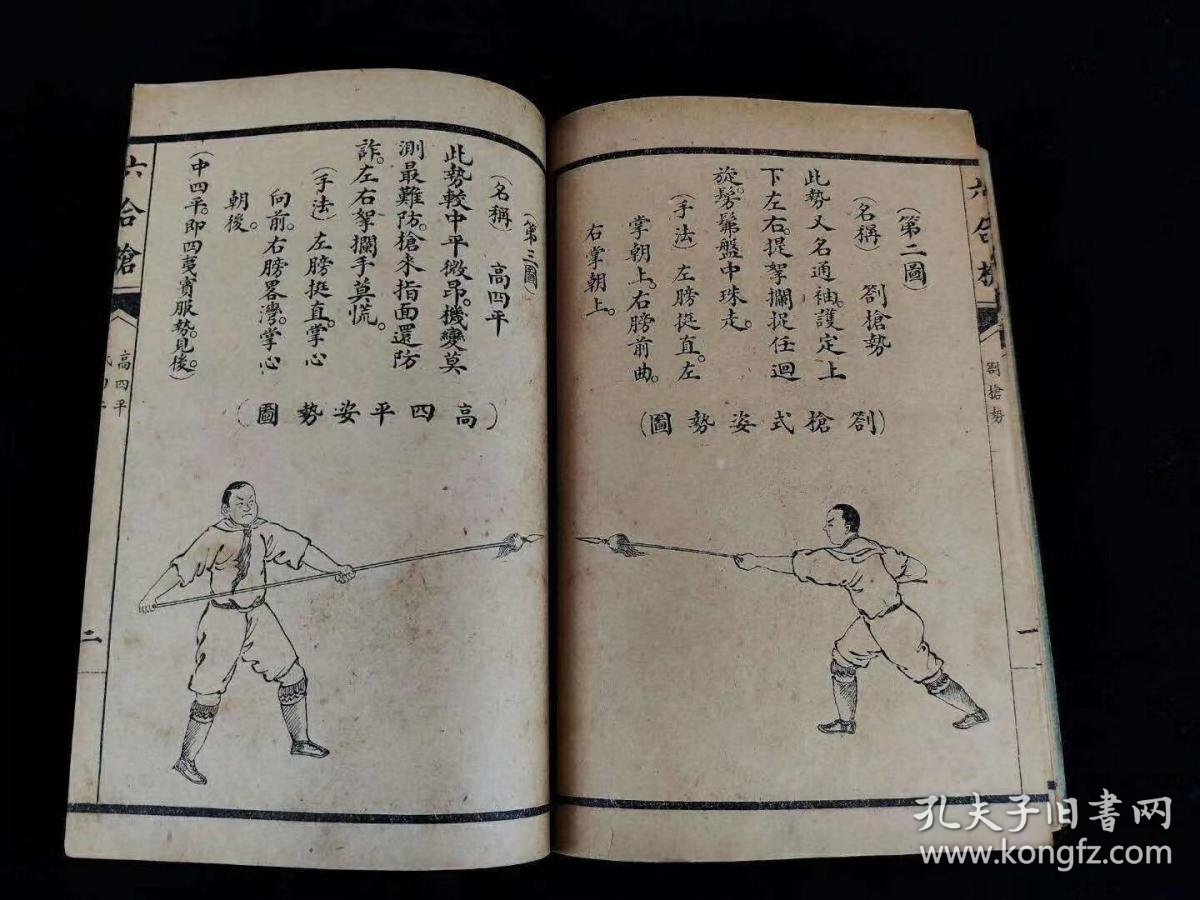 六合槍
劄槍勢
一
（第二圖）
（名稱）　劄槍勢
此勢又名通袖。護定上
下左右。提拏攔捉任迴
旋。髣髴盤中珠走。
（手法）左膀挺直。左
掌朝上。右膀前曲。
右掌朝上。
（劄槍式姿勢圖）
（第三圖）
（名稱）　高四平
此勢較中平微昂。機變莫
測最難防。槍来指面還防
詐。左右拏攔手莫慌。
（手法）左膀挺直。掌心
向前。右膀畧灣。掌心
朝後。
（中四平。即四夷賓服勢。見後。）
（高四平姿勢圖）
六合槍
高四平
二
孔夫子旧書网
www.kongfz.com